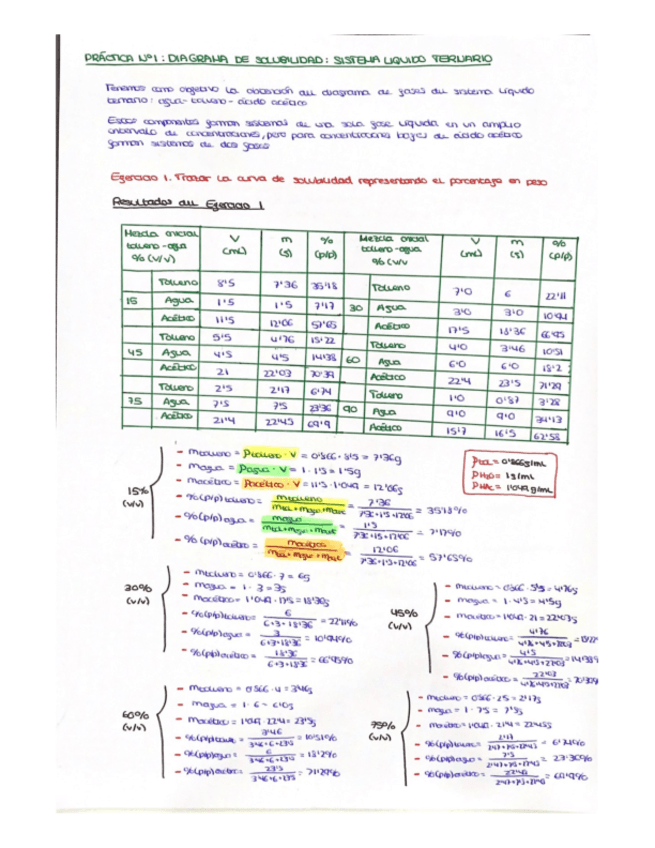 PRÁCTICA Nº1: DIAGRAMA DE SOLUBILIDAD: SISTEMA LIQUIDO TERNARIO
Tenemos como objetivo la obtención del diagrama de fases del sistema líquido
ternario: agua - tolueno - ácido acético
Estos componentes forman sistemas de una sola fase líquida en un amplio
intervalo de concentraciones, pero para concentraciones bajas de ácido acético
forman sistemas de dos fases
Ejercicio 1. Trazar la curva de solubilidad representando el porcentaje en peso
Resultados del Ejercicio 1
Mezcla inicial tolueno-agua % (v/v) V (mL) m (g) % (p/p) Mezcla inicial tolueno-agua % (v/v V (mL) m (g) % (p/p)
Tolueno 8'5 7'36 35'18 Tolueno 7'0 6 22'11
15 Agua 1'5 1'5 7'17 30 Agua 3'0 3'0 10'94
Acético 11'5 12'06 57'65 Acético 17'5 18'36 66'95
Tolueno 5'5 4'76 15'22 Tolueno 4'0 3'46 10'51
45 Agua 4'5 4'5 14'38 60 Agua 6'0 6'0 18'2
Acético 21 22'03 70'39 Acético 22'4 23'5 71'29
Tolueno 2'5 2'17 6'74 Tolueno 1'0 0'87 3'28
75 Agua 7'5 7'5 23'36 90 Agua 9'0 9'0 34'13
Acético 21'4 22'45 69'9 Acético 15'7 16'5 62'58
15% (v/v)
- mtolueno = ρtolueno · V = 0'866 · 8'5 = 7'36g
- magua = ρagua · V = 1 · 1'5 = 1'5g
- macético = ρacético · V = 11'5 · 1'049 = 12'06g
- %(p/p) tolueno = mtolueno / mtol + magua + mace = 7'36 / 7'36+1'5+12'06
- %(p/p) agua = magua / mtol + magua + mace = 1'5 / 7'36+1'5+12'06 = 7'17%
- %(p/p) acético = macético / mtol + magua + mace = 12'06 / 7'36+1'5+12'06 = 57'65%
ρtol = 0'866g/mL
ρH2O = 1g/mL
ρHAc = 1'049g/mL
30% (v/v)
- mtolueno = 0'866 · 7 = 6g
- magua = 1 · 3 = 3g
- macético = 1'049 · 17'5 = 18'36g
- %(p/p) tolueno = 6 / 6+3+18'36 = 22'11%
- %(p/p) agua = 3 / 6+3+18'36 = 10'94%
- %(p/p) acético = 18'36 / 6+3+18'36 = 66'95%
45% (v/v)
- mtolueno = 0'866 · 5'5 = 4'76g
- magua = 1 · 4'5 = 4'5g
- macético = 1'049 · 21 = 22'03g
- %(p/p) tolueno = 4'76 / 4'76+4'5+22'03
- %(p/p) agua = 4'5 / 4'76+4'5+22'03
- %(p/p) acético = 22'03 / 4'76+4'5+22'03
60% (v/v)
- mtolueno = 0'866 · 4 = 3'46g
- magua = 1 · 6 = 6'0g
- macético = 1'049 · 22'4 = 23'5g
- %(p/p) tolueno = 3'46 / 3'46+6+23'5 = 10'51%
- %(p/p) agua = 6 / 3'46+6+23'5 = 18'2%
- %(p/p) acético = 23'5 / 3'46+6+23'5 = 71'29%
75% (v/v)
- mtolueno = 0'866 · 2'5 = 2'17g
- magua = 1 · 7'5 = 7'5g
- macético = 1'049 · 21'4 = 22'45g
- %(p/p) tolueno = 2'17 / = 6'74%
- %(p/p) agua = 7'5 / = 23'36%
- %(p/p) acético = 22'45 / = 69'9%